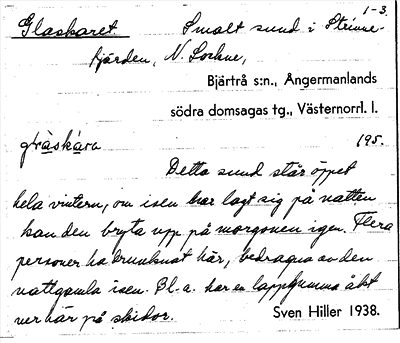 1-3.
Glaskaret. Smalt sund i Strinne-
fjärden, N. Lockne,
Bjärtrå s:n., Ångermanlands
södra domsagas tg., Västernorrl. l.
gḷàskára 195.
Detta sund står öppet
hela vintern, om isen har lagt sig på natten
kan den bryta upp på morgonen igen. Flera
personer ha drunknat här, bedragna av den
nattgamla isen. Bl. a. har en lappgumma åkt
ner här på skidor. Sven Hiller 1938.